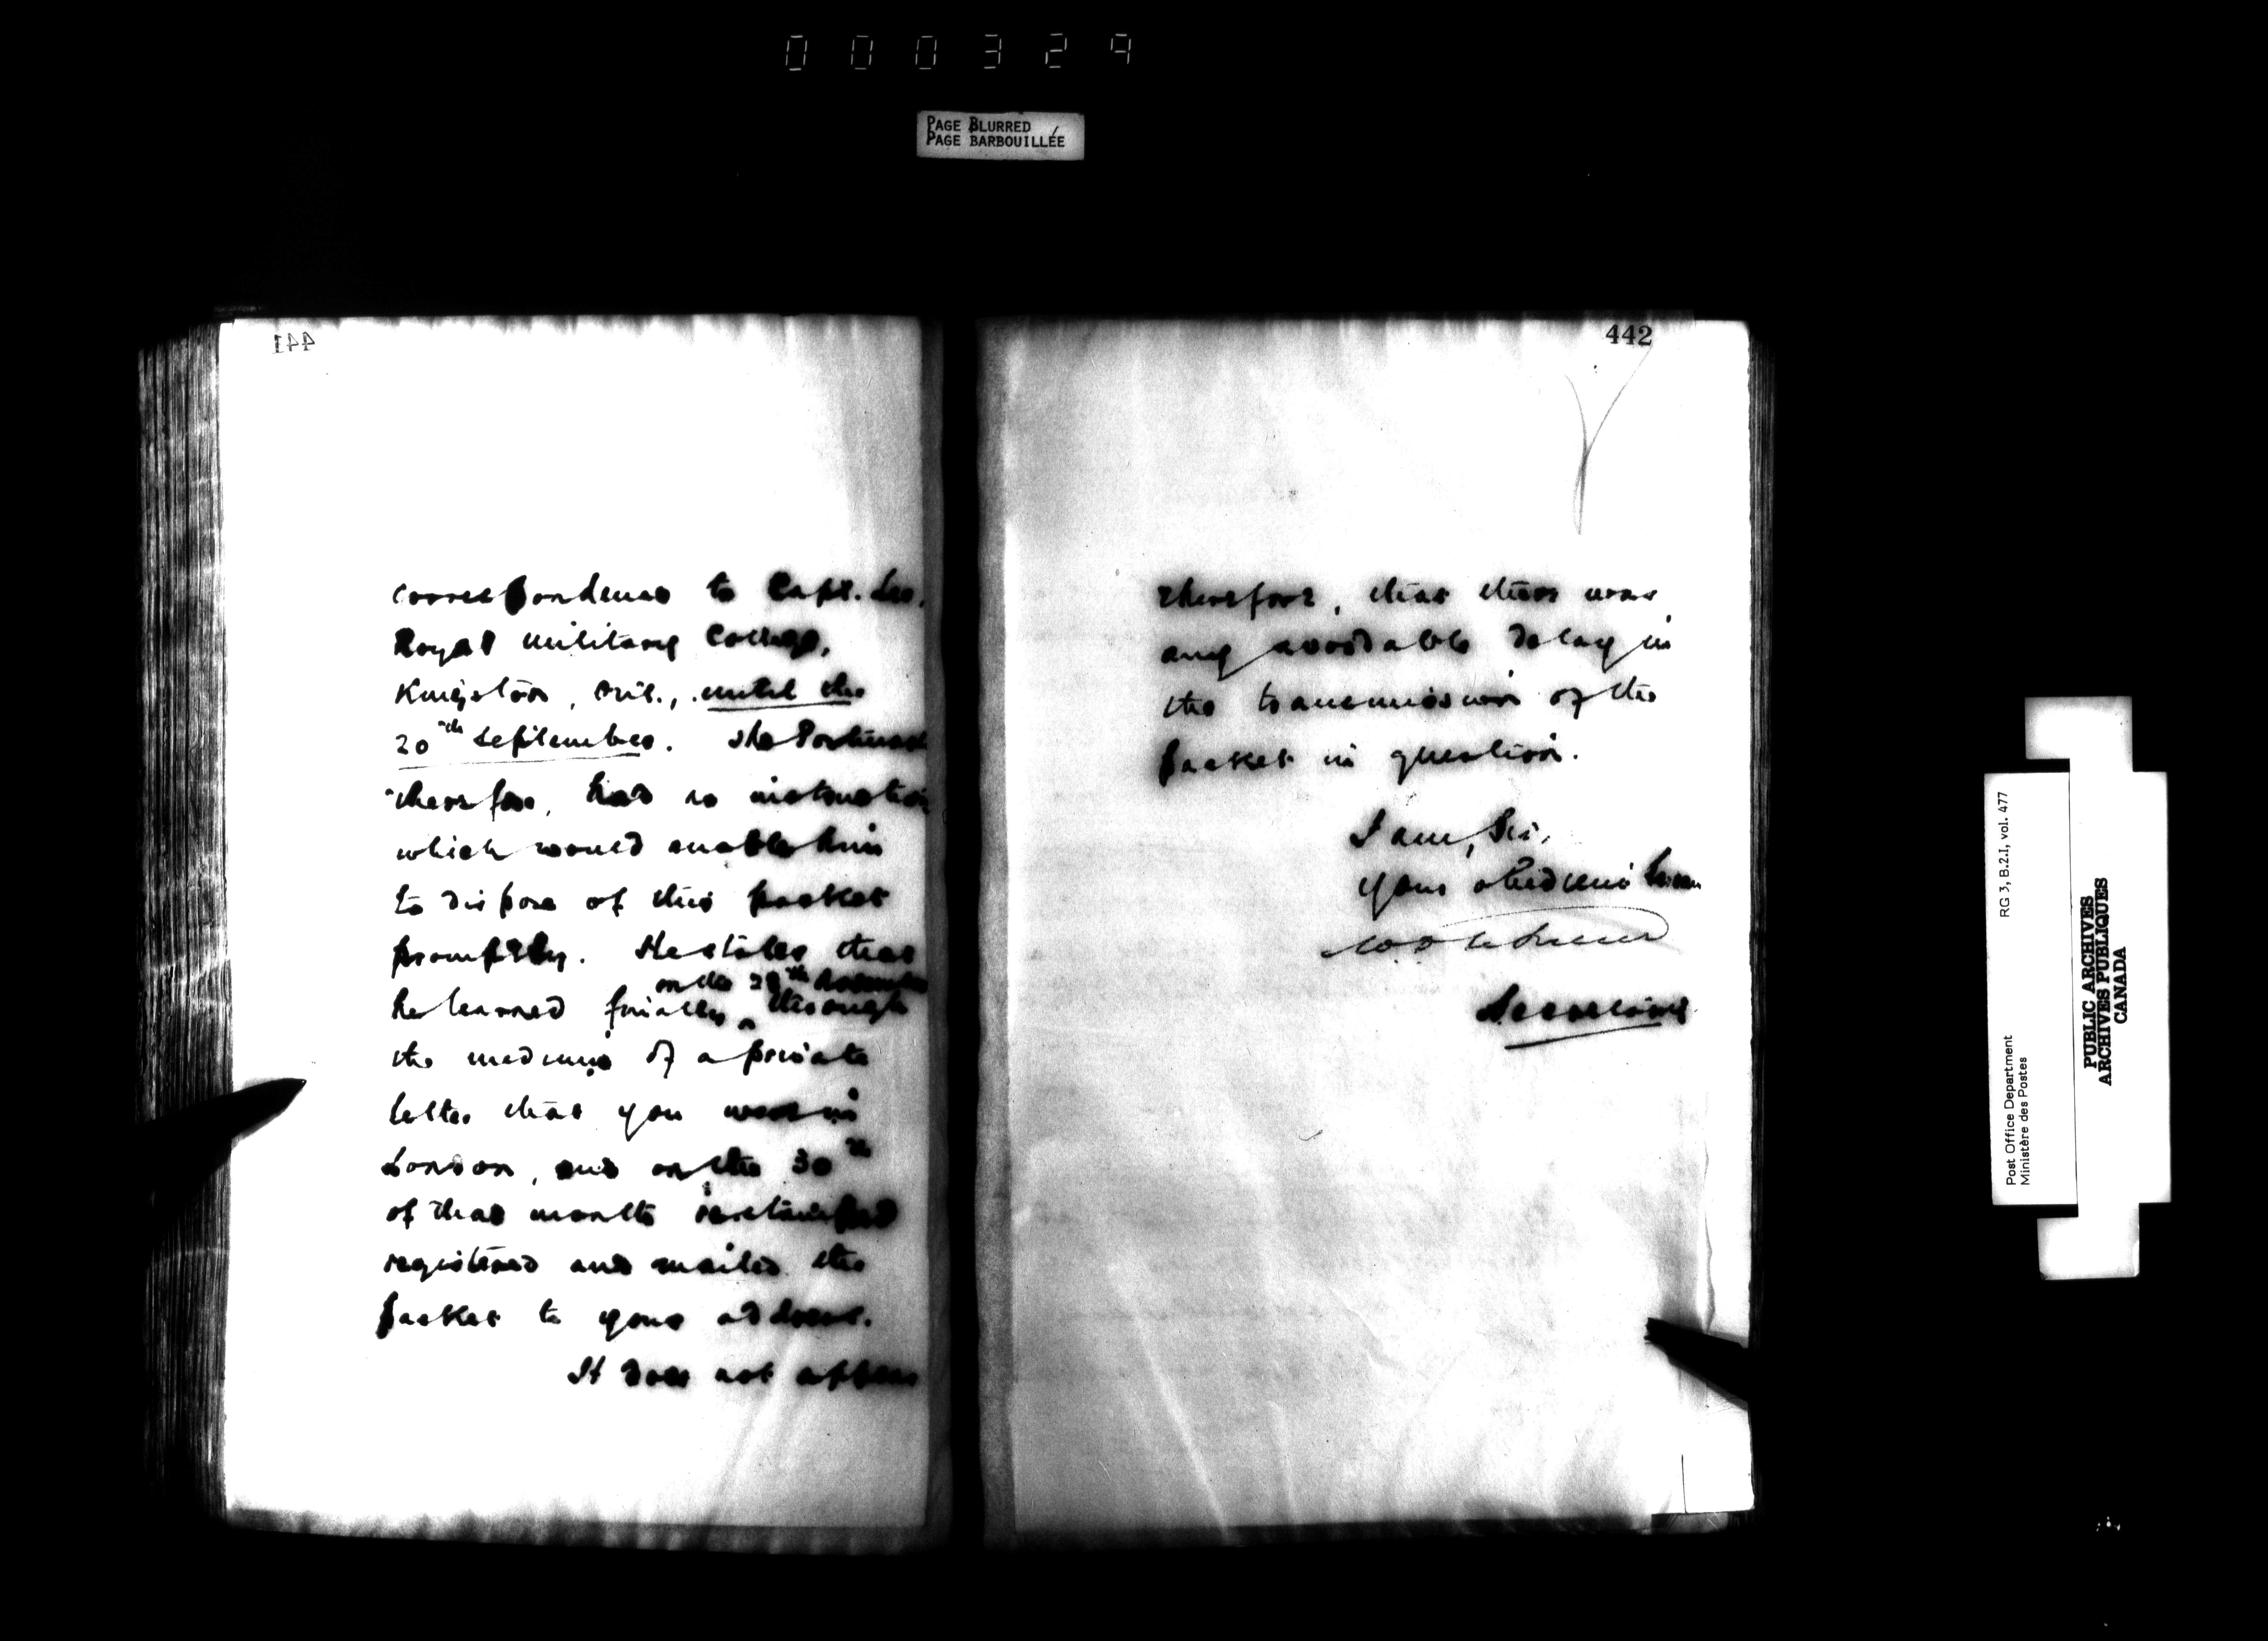 000329
PAGE BLURRED
PAGE BARBOUILLÉE
441
correspondence to Capt. Lee,
Royal Military College,
Kingston, Ont., until the
20th September. The Postmaster
therefore, had no instruction
which would enable him
to dispose of this packet
promptly. He states that
on the 28th November
he learned finally ^ through
the medium of a private
letter that you were in
London, and on the 30th
of that month
registered and mailed the
packet to your address.
It does not appear
442
therefore, that there was
any avoidable delay in
the transmission of the
packet in question.
I am, Sir,
Your obedient Servant
Secretary
RG 3, B.2.I, vol. 477
Post Office Department
Ministère des Postes
PUBLIC ARCHIVES
ARCHIVES PUBLIQUES
CANADA